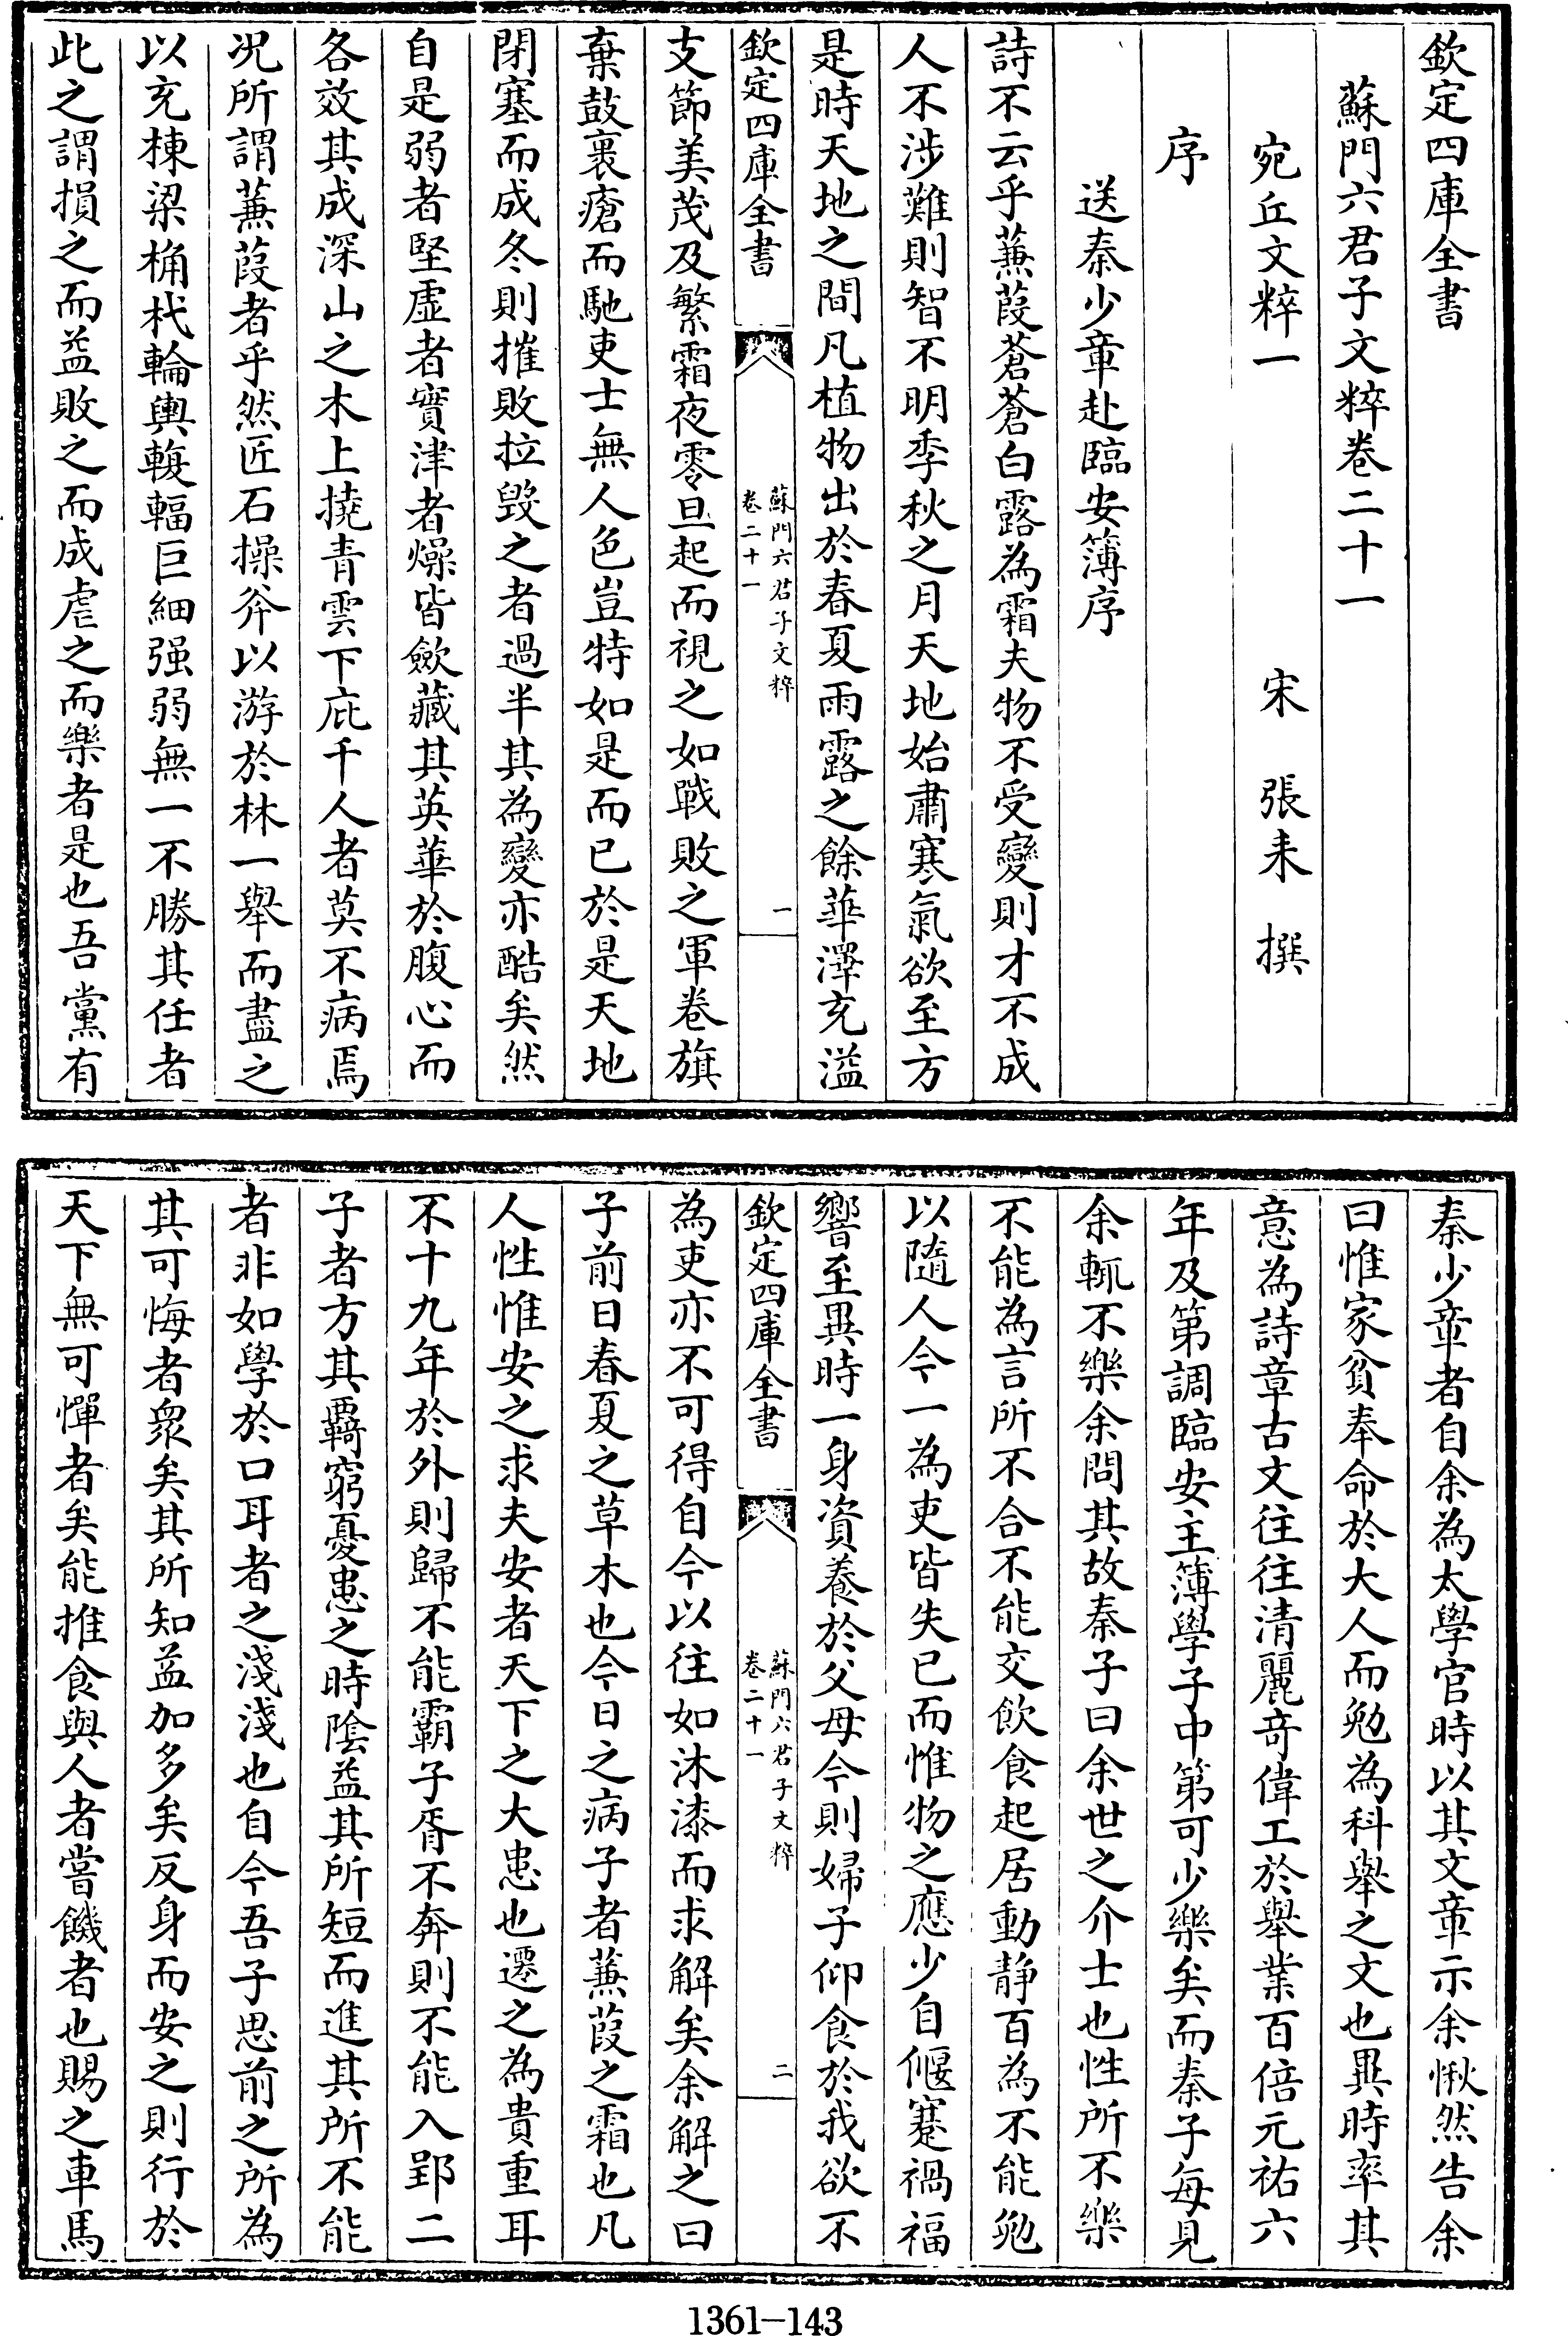 欽定四庫全書
蘇門六君子文粹卷二十一
宛丘文粹一　宋　張耒　撰
序
送秦少章赴臨安簿序
詩不云乎蒹葭蒼蒼白露為霜夫物不受變則才不成
人不涉難則智不明季秋之月天地始肅寒氣欲至方
是時天地之間凡植物出於春夏雨露之餘華澤充溢
欽定四庫全書
蘇門六君子文粹
卷二十一
一
支節美茂及繁霜夜零旦起而視之如戰敗之軍卷旗
棄鼓裹瘡而馳吏士無人色豈特如是而已於是天地
閉塞而成冬則摧敗拉毀之者過半其為變亦酷矣然
自是弱者堅虛者實津者燥皆歛藏其英華於腹心而
各效其成深山之木上撓青雲下庇千人者莫不病焉
况所謂蒹葭者乎然匠石操斧以游於林一舉而盡之
以充棟梁桷杙輪輿輹輻巨細强弱無一不勝其任者
此之謂損之而益敗之而成虐之而樂者是也吾黨有
秦少章者自余為太學官時以其文章示余愀然告余
曰惟家貧奉命於大人而勉為科舉之文也異時率其
意為詩章古文往往清麗奇偉工於舉業百倍元祐六
年及第調臨安主簿學子中第可少樂矣而秦子每見
余輒不樂余問其故秦子曰余世之介士也性所不樂
不能為言所不合不能交飲食起居動静百為不能勉
以隨人今一為吏皆失已而惟物之應少自偃蹇禍福
響至異時一身資養於父母今則婦子仰食於我欲不
欽定四庫全書
蘇門六君子文粹
卷二十一
二
為吏亦不可得自今以往如沐漆而求解矣余解之曰
子前日春夏之草木也今日之病子者蒹葭之霜也凡
人性惟安之求夫安者天下之大患也遷之為貴重耳
不十九年於外則歸不能霸子胥不奔則不能入郢二
子者方其羇窮憂患之時陰益其所短而進其所不能
者非如學於口耳者之淺淺也自今吾子思前之所為
其可悔者衆矣其所知益加多矣反身而安之則行於
天下無可憚者矣能推食與人者嘗饑者也賜之車馬
1361-143